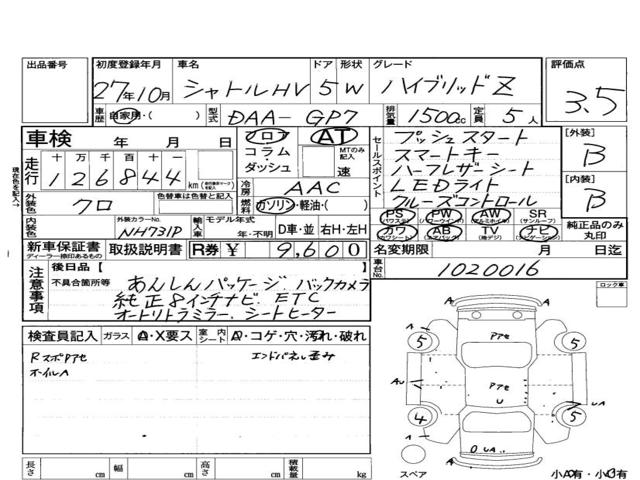 出品番号 初度登録年月 車名 ドア 形状 グレード 評価点
27年10月 シャトルHV 5 W ハイブリッドZ 3.5
車歴 自家用・( ) 型式 DAA- GP7 排気量 1500cc 定員 5人
車検 年 月 日 フロア AT
コラム・ダッシュ MTのみ記入 速
セールスポイント
プッシュスタート
スマートキー
ハーフレザーシート
LEDライト
クルーズコントロール
[外装] B
[内装] B
走行 十 万 千 百 十 一
1 2 6 8 4 4 km
冷房 AAC
外装色 クロ 色替車は色替と記入 燃料 ガソリン・軽油・( )
内装色 外装カラーNo. NH731P 輸入車 モデル年式 年・不明 D車・並 右H・左H
PS PW AW SR
(パワステ) (パワーウインドウ) (アルミホイル) (サンルーフ)
カワ AB TV ナビ
(カワシート) (エアバッグ) (地デジ) (ナビゲーション)
純正品のみ丸印
新車保証書 取扱説明書 R券 ¥ 9,600 名変期限 月 日迄
ディーラー捺印あるもの
車台No. 1020016
注意事項 後日品 [ ]
不具合箇所等 あんしんパッケージ. バックカメラ
純正8インチナビ. ETC
オートリトラミラー. シートヒーター
ロック車
検査員記入 ガラス A・X要ス 室内シート A・コゲ・穴・汚れ・破れ
RスポPアセ エンドパネル歪み
オイルA
A A
5 Pアセ 5
AU Pアセ
U UA
4 5
UA
スペア 小A有・小U有
長さ cm 幅 cm 高さ cm 積載量 kg
現在色を記入→